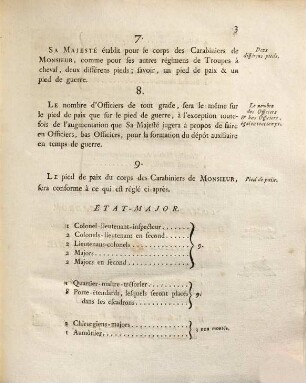 3
7.
SA MAJESTÉ établit pour le corps des Carabiniers de
MONSIEUR, comme pour ses autres régimens de Troupes à
cheval, deux différens pieds; savoir, un pied de paix & un
pied de guerre.
Deux
différens pieds.
8.
LE nombre d'Officiers de tout grade, sera le même sur
le pied de paix que sur le pied de guerre, à l'exception toute-
fois de l'augmentation que Sa Majesté jugera à propos de faire
en Officiers, bas Officiers, pour la formation du dépôt auxiliaire
en temps de guerre.
Le nombre
des Officiers
& bas Officiers,
9.
LE pied de paix du corps des Carabiniers de MONSIEUR,
sera conforme à ce qui est réglé ci-après.
Pied de paix.
ÉTAT-MAJOR.
1 Colonel-lieutenant-inspecteur
2 Colonels-lieutenans en second
2 Lieutenans-colonels
2 Majors
2 Majors en second
9.
1 Quartier-maître-trésorier
8 Porte-étendards, lesquels seront placés
dans les escadrons
9.
2 Chirurgiens-majors
1 Aumônier
3 non montés.